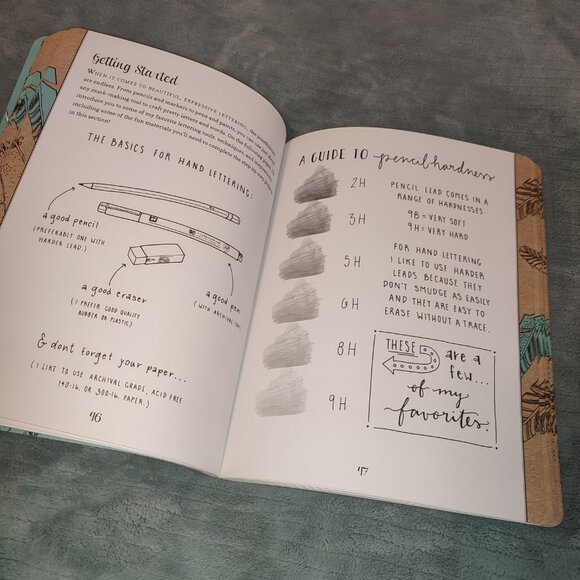 Getting Started
WHEN IT COMES TO BEAUTIFUL, EXPRESSIVE LETTERING, the possibilities
are endless. From pencils and markers to pens and paints, you can use just about
any mark-making tool to craft pretty letters and words. On the following pages, I'll
introduce you to some of my favorite lettering tools, techniques, and
including some of the fun materials you'll need to complete the step-by-step projects
in this section!
THE BASICS FOR HAND LETTERING:
a good pencil
(PREFERABLY ONE WITH
HARDER LEAD.)
a good eraser
(I PREFER GOOD QUALITY
RUBBER OR PLASTIC)
a good pen
(WITH ARCHIVAL INK)
& dont forget your paper...
(I LIKE TO USE ARCHIVAL GRADE, ACID FREE
140-lb. OR 300-lb. PAPER.)
46
A GUIDE TO pencil hardness
2H
3H
5H
6H
8H
9H
PENCIL LEAD COMES IN A
RANGE OF HARDNESSES
9B = VERY SOFT
9H = VERY HARD
FOR HAND LETTERING
I LIKE TO USE HARDER
LEADS BECAUSE THEY
DON'T SMUDGE AS EASILY
AND THEY ARE EASY TO
ERASE WITHOUT A TRACE.
THESE are a
few...
of my
favorites.
47